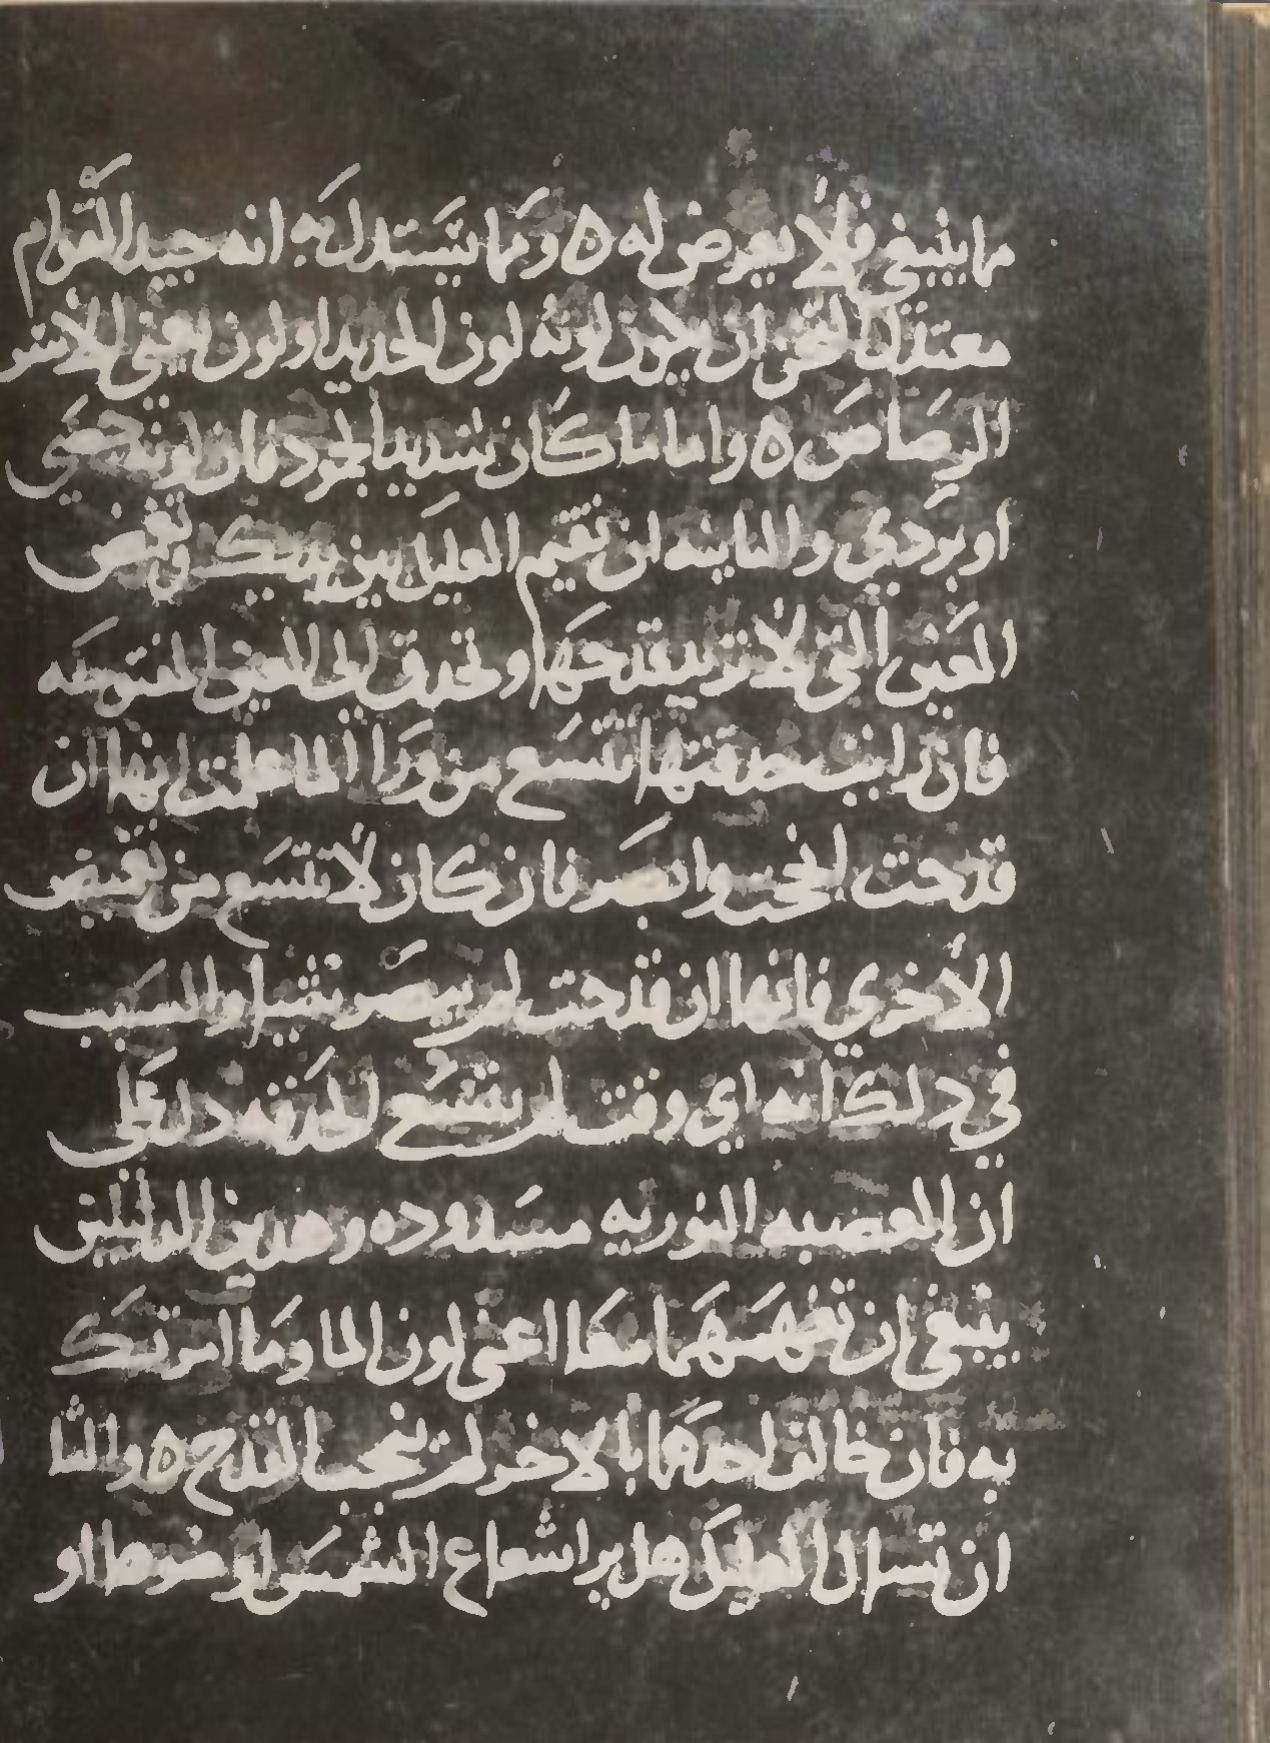 ما ينبغي فلا يعرض له ٥ ومما يستدل به انه جيد القوام
معتدل الثخن ان يكون لونه لون الحديد او لون يعني الاسر
الرصاص ٥ واما ما كان شديد الجمود فان لونه جصي
او بردي والثانيه ان تقيم العليل بين يديك وتغمض
العين التي لا تريد قدحها وتحدق الي العين المفتوحه
فان رايت حدقتها تتسع من ورا الما علمت انها ان
قدحت انجبت وابصر فان كان لا تتسع من تغميض
الاخري فانها ان قدحت لم يبصر شيا والسبب
في دلك انه اي وقت لم تتسع الحدقه دل علي
ان العصبه النوريه مسدوده وهدين الدليلين
ينبغي ان تفهمهما معا اعني لون الما وما امرتك
به فان خالف احدهما بالاخر لم ينجب القدح ٥ والثا
ان تسال العليل هل يرا شعاع الشمس او ضوها او